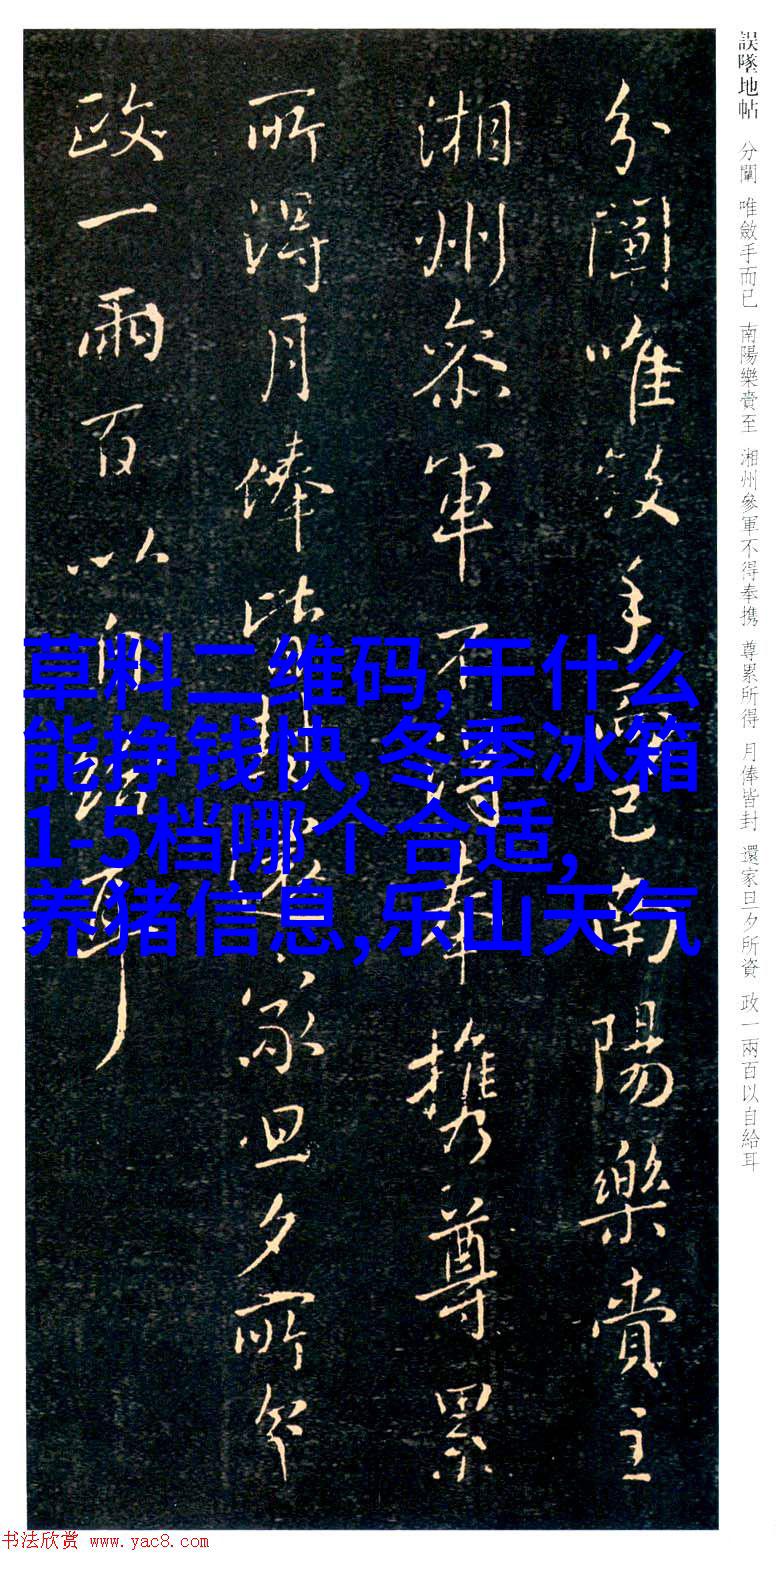 誤墜地帖 分闡 唯斂手而已 南陽樂賫至 湘州參軍不得奉携 尊累所得 月俸皆封 還家旦夕所資 政一兩百以自給耳
分闡唯斂手而已南陽樂賫至
湘州參軍不得奉攜尊累
所得月俸皆封還家旦夕所資
政一兩百以自給耳
草料二维码,干什么
能挣钱快,冬季冰箱
1-5档哪个合适,
养猪信息,乐山天气
书法欣赏 www.yac8.com